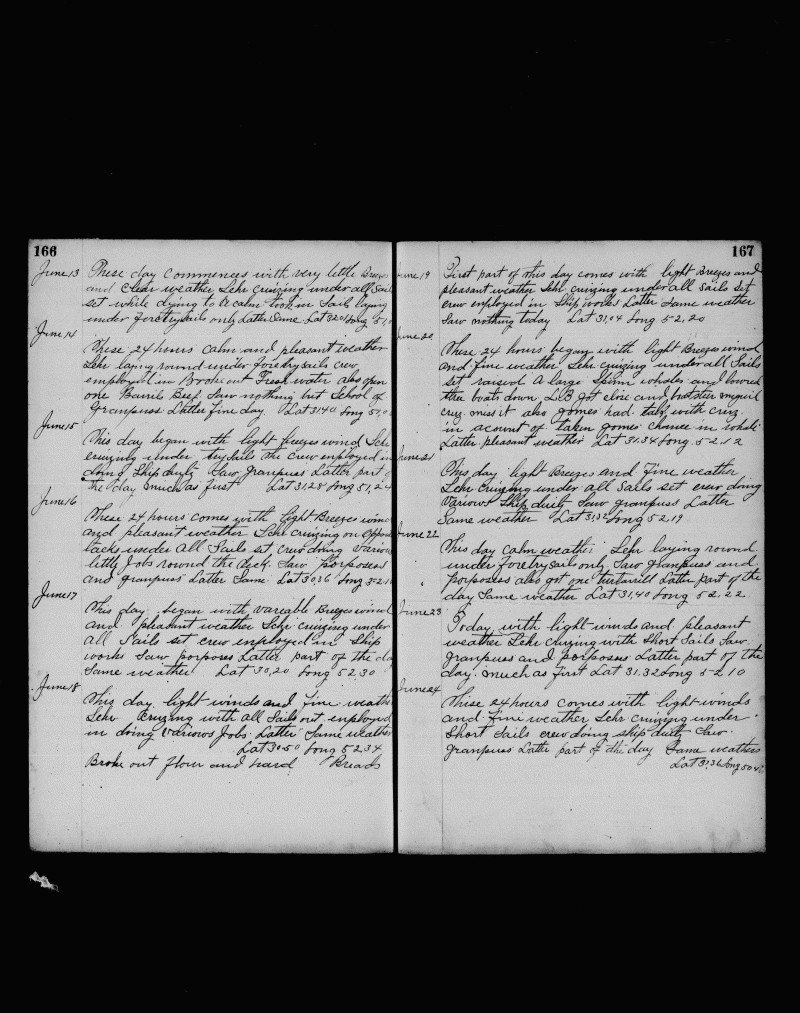 166
June 13 These day commences with very little Breezes
and Clear weather Schr cruizing under all Sails
set while dying to be calm took in Sails laying
under foretrysails only Latter Same Lat 32.01 Long 51,0
June 14
These 24 hours calm and pleasant weather
Schr laying round under foretrysails crew
employed in Brokeout Fresh water also open
one Barrils Beef Saw nothing but School of
Granpuss Latter fine day Lat 31.40 Long 51,0
June 15
This day began with light freezes wind Schr
cruizing under trysails the crew employed in
doing Ship duty Saw granpuss Latter part of
the day much as first Lat 31,28 Long 51,2
June 16
These 24 hours comes with light Breezes wind
and pleasant weather Schr cruizing on Opposite
tacks under All Sails set crew doing various
little Jobs round the deck Saw porposses
and granpuss Latter Same Lat 30.26 Long 52.1
June 17
This day began with vareable Breezes wind
and pleasant weather Schr cruizing under
all Sails set crew enployed in Ship
works Saw porposes Latter part of the day
Same weather Lat 30,20 Long 52.30
June 18
This day light winds and fine weather
Schr Cruzing with all Sails out enployed
in doing variows Jobs Latter Same weather
Lat 30.50 Long 52.34
Broke out flour and hard Breads
167
June 19 First part of this day comes with light Breezes and
pleasant weather Schr cruzing under all Sails set
crew employed in Ship works Latter Same weather
Saw nothing today Lat 31,04 Long 52,20
June 20
These 24 hours began with light Breezes wind
and fine weather Schr cruizing under all Sails
set raised A large Spirm whales and lowred
thee boats down L.B got close and
cruz miss it also gomes had with cruz
in acount of taken gomes chance in whale
Latter pleasant weather Lat 31.34 Long 52.12
June 21
This day light Breezes and Fine weather
Schr Cruizing under all Sails set crew doing
Variows Ship duity Saw granpuss Latter
Same weather Lat 31,32 Long 52,19
June 22
This day calm weather Schr laying round
under foretrysails only Saw Granpuss and
porposses also got one Latter part of the
day Same weather Lat 31,40 Long 52,22
June 23
Today with light winds and pleasant
weather Schr Cruizing with Short Sails Saw
granpuss and porposses Latter part of the
day much as first Lat 31.32 Long 52.10
June 24
These 24 hours comes with light winds
and fine weather Schr cruizing under
Short Sails crew doing ship duity Saw
granpuss Latter part of this day Same weathers
Lat 31.36 Long 50.4